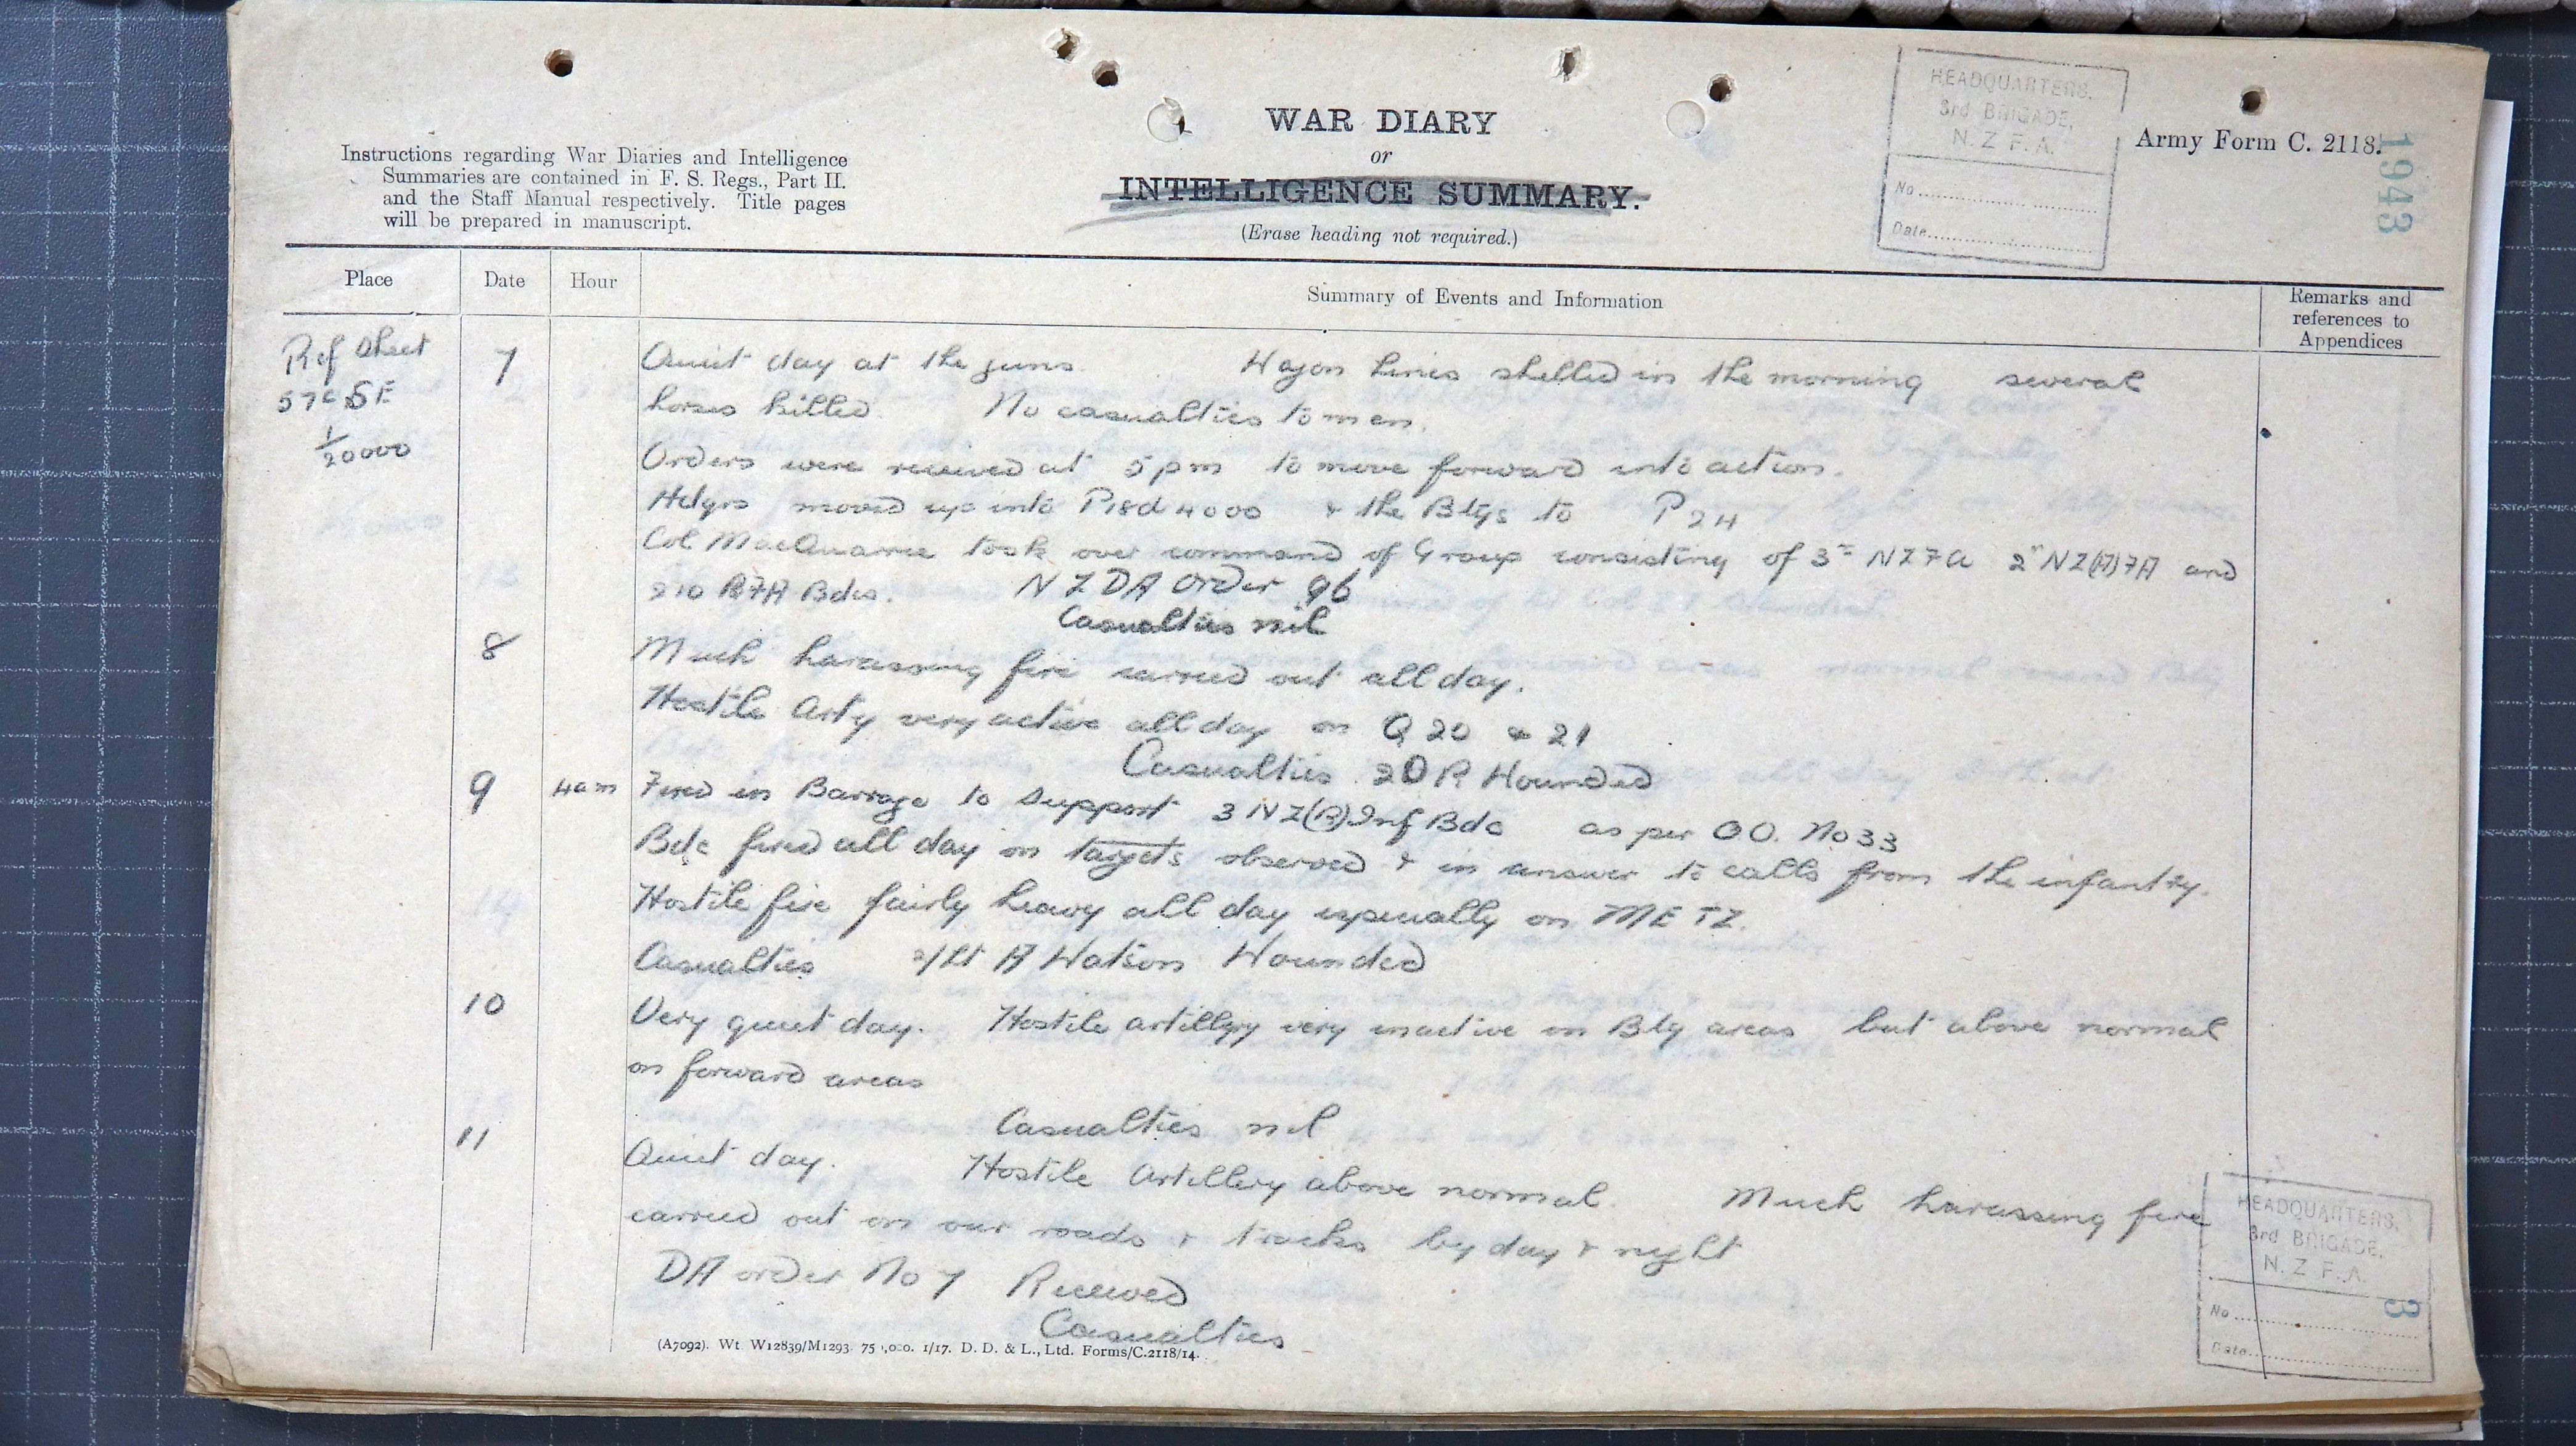 HEADQUARTERS,
3rd BRIGADE,
N. Z. F. A.
No
Date
1943
Army Form C. 2118.
WAR DIARY
or
INTELLIGENCE SUMMARY.
(Erase heading not required.)
Instructions regarding War Diaries and Intelligence
Summaries are contained in F. S. Regs., Part II.
and the Staff Manual respectively. Title pages
will be prepared in manuscript.
Place Date Hour Summary of Events and Information Remarks and references to Appendices
Ref Sheet
57c SE
1/20000
7 Quiet day at the guns Wagon Lines shelled in the morning several
horses killed. No casualties to men.
Orders were received at 5 pm to move forward into action.
Hdqrs moved up into P18d 4000 & the Btys to P 24
Col MacQuarrie took over command of Group consisting of 3rd NZFA 2nd NZ(A)FA and
210 RFA Bdes. NZDA Order 96
Casualties nil
8 Much harassing fire carried out all day.
Hostile Arty very active all day on Q 20 & 21
Casualties 2 OR Wounded
9 4am Fired in Barrage to Support 3 NZ(R) Inf Bde as per OO. No 33
Bde fired all day on targets observed & in answer to calls from the infantry.
Hostile fire fairly heavy all day especially on METZ.
Casualties 2/Lt A Watson Wounded
10 Very quiet day. Hostile artillery very inactive on Bty areas but above normal
on forward areas
Casualties nil
11 Quiet day. Hostile Artillery above normal. Much harassing fire
carried out on our roads & tracks by day & night
DA order No 7 Received
Casualties
(A7092). Wt. W12839/M1293. 75 ,000. 1/17. D. D. & L., Ltd. Forms/C.2118/14.
HEADQUARTERS,
3rd BRIGADE,
N. Z. F. A.
3
No
Date